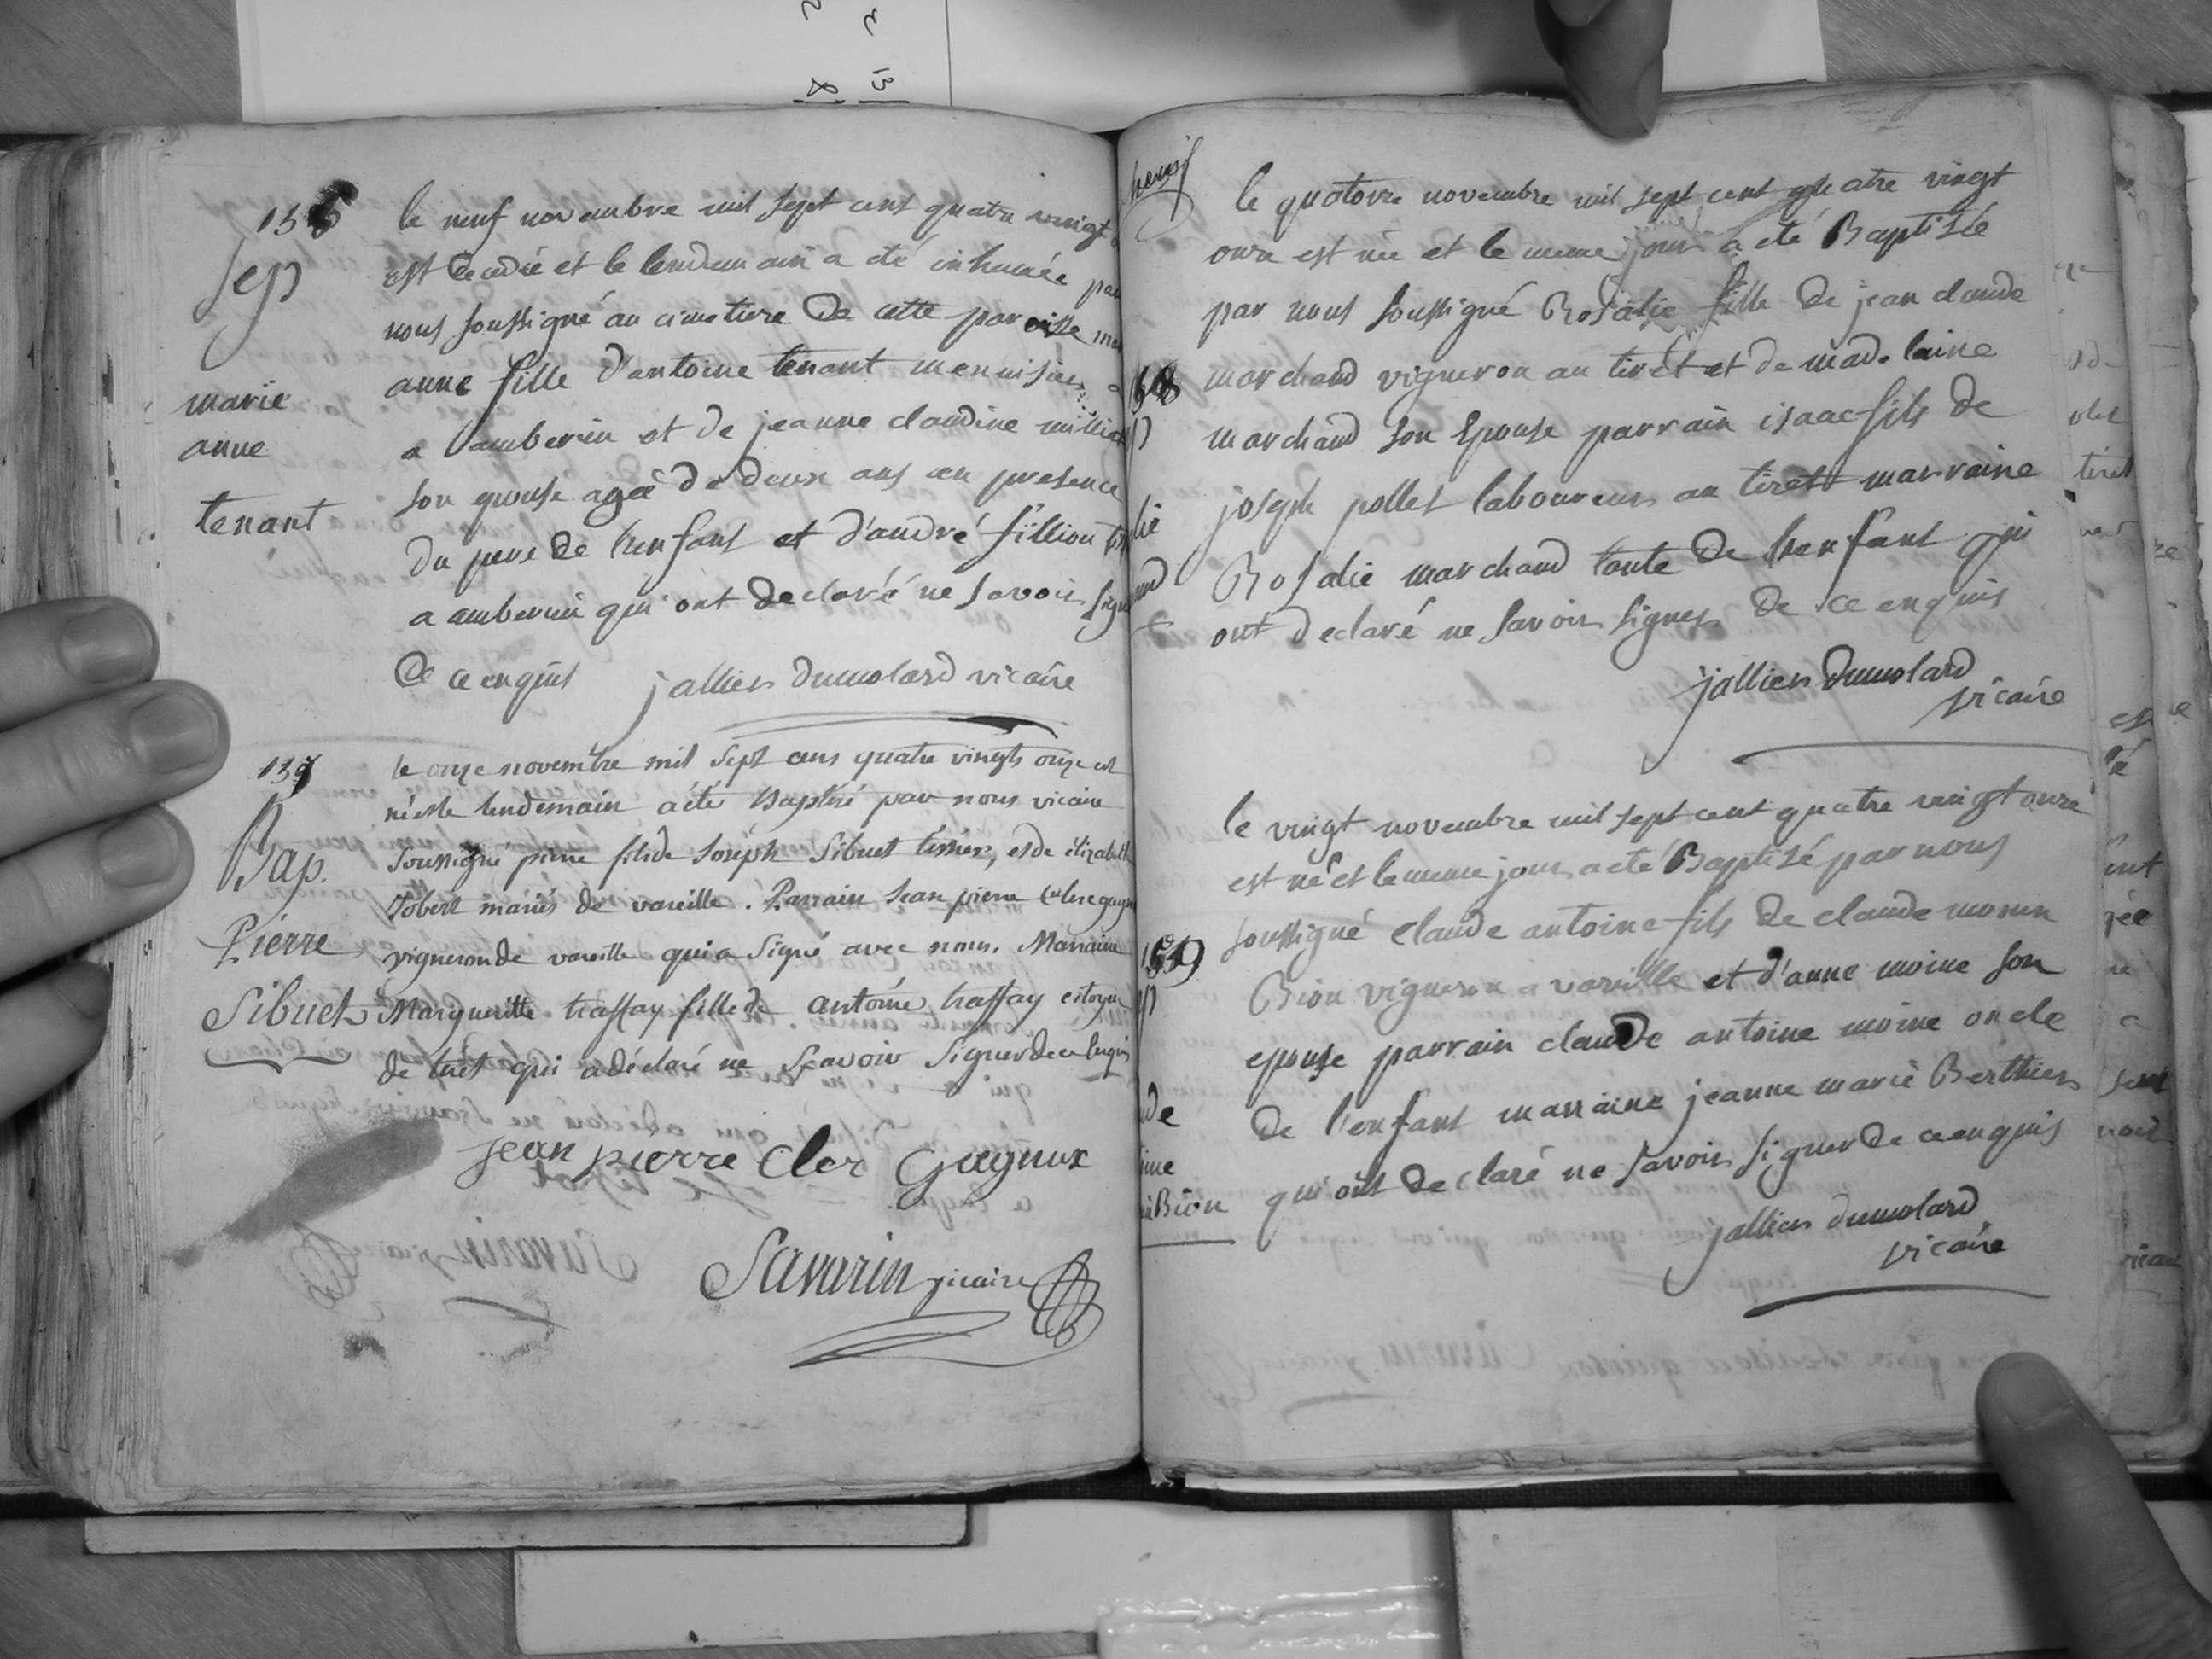 136
Sep
marie
anne
tenant
le neuf novembre mil sept cent quatre vingt
est decedée et le lendemain a eté inhumée par
nous soussigné au cimetiere de cette paroisse
anne fille d'antoine tenant menuisier
a amberieu et de jeanne claudine
son epouse ageé de deux ans en presence
du pere de l'enfant et d'andré fillion
a amberieu qui ont declaré ne savoir signer
de ce enquis jallier dumolard vicaire
137
Bap.
Pierre
Sibuet
le onze novembre mil sept cens quatre vingts onze est
né et le lendemain a été Baptisé par nous vicaire
soussigné pierre fils de Joseph Sibuet tissier, et de élizabeth
Jobert mariés de vareille. Parrain Jean pierre
vigneron de vareille qui a signé avec nous. Marraine
Margueritte traffay fille de antoine traffay citoyen
de tiret qui a déclaré ne Sçavoir signer de ce Enquis
jean pierre Cler Gugnux
Savarin vicaire
le quatorze novembre mil sept cent quatre vingt
onze est née et le meme jour a eté Baptisée
par nous soussigné Rosalie fille de jean claude
marchand vigneron au tiret et de madelaine
marchand son Epouse parrain isaac fils de
joseph pollet laboureur au tiret marraine
Rosalie marchand tante de l'enfant qui
ont declaré ne savoir signer de ce enquis
jallier dumolard
vicaire
139
Bion
le vingt novembre mil sept cent quatre vingt onze
est né et le meme jour a eté Baptisé par nous
soussigné claude antoine fils de claude
Bion vigneron a vareille et d'anne moine son
epouse parrain claude antoine moine oncle
de l'enfant marraine jeanne marie Berthier
qui ont declaré ne savoir signer de ce enquis
jallier dumolard
vicaire